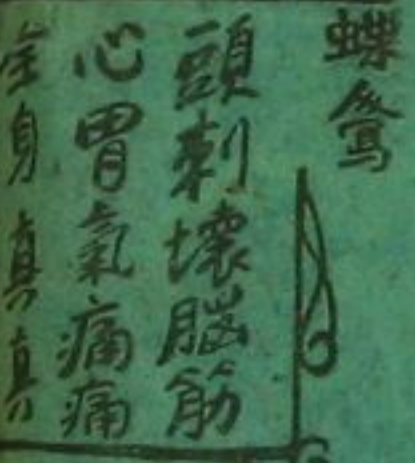 蝶鴛
頭刺壞腦筋
心胃氣痛痛
全身真真